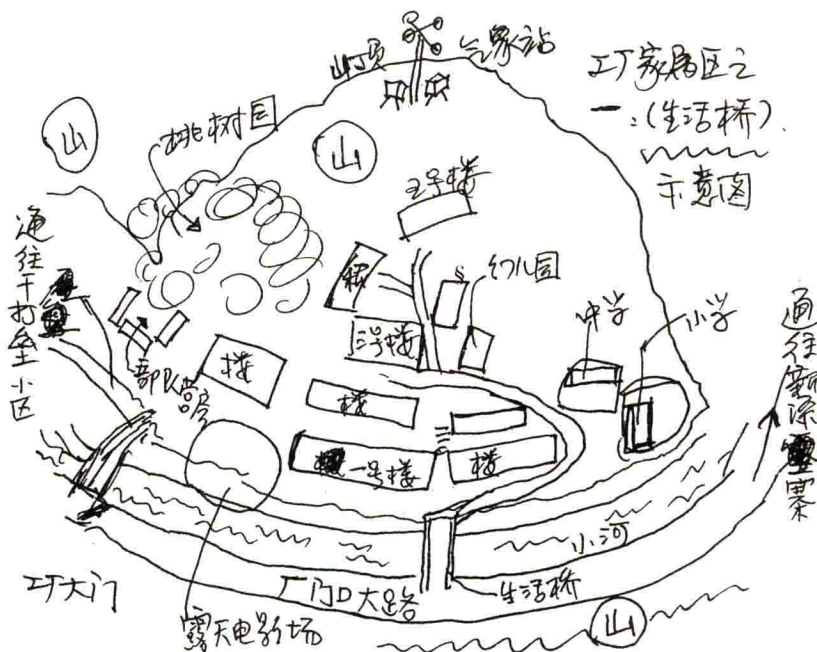 山顶
气象站
工厂家属区之
一:(生活桥)
示意图
山
桃树园
山
五号楼
通往干打垒小区
幼儿园
中学
小学
三号楼
部队营房
楼
楼
一号楼
楼
通往新添寨
小河
工厂大门
厂门口大路
生活桥
露天电影场
山